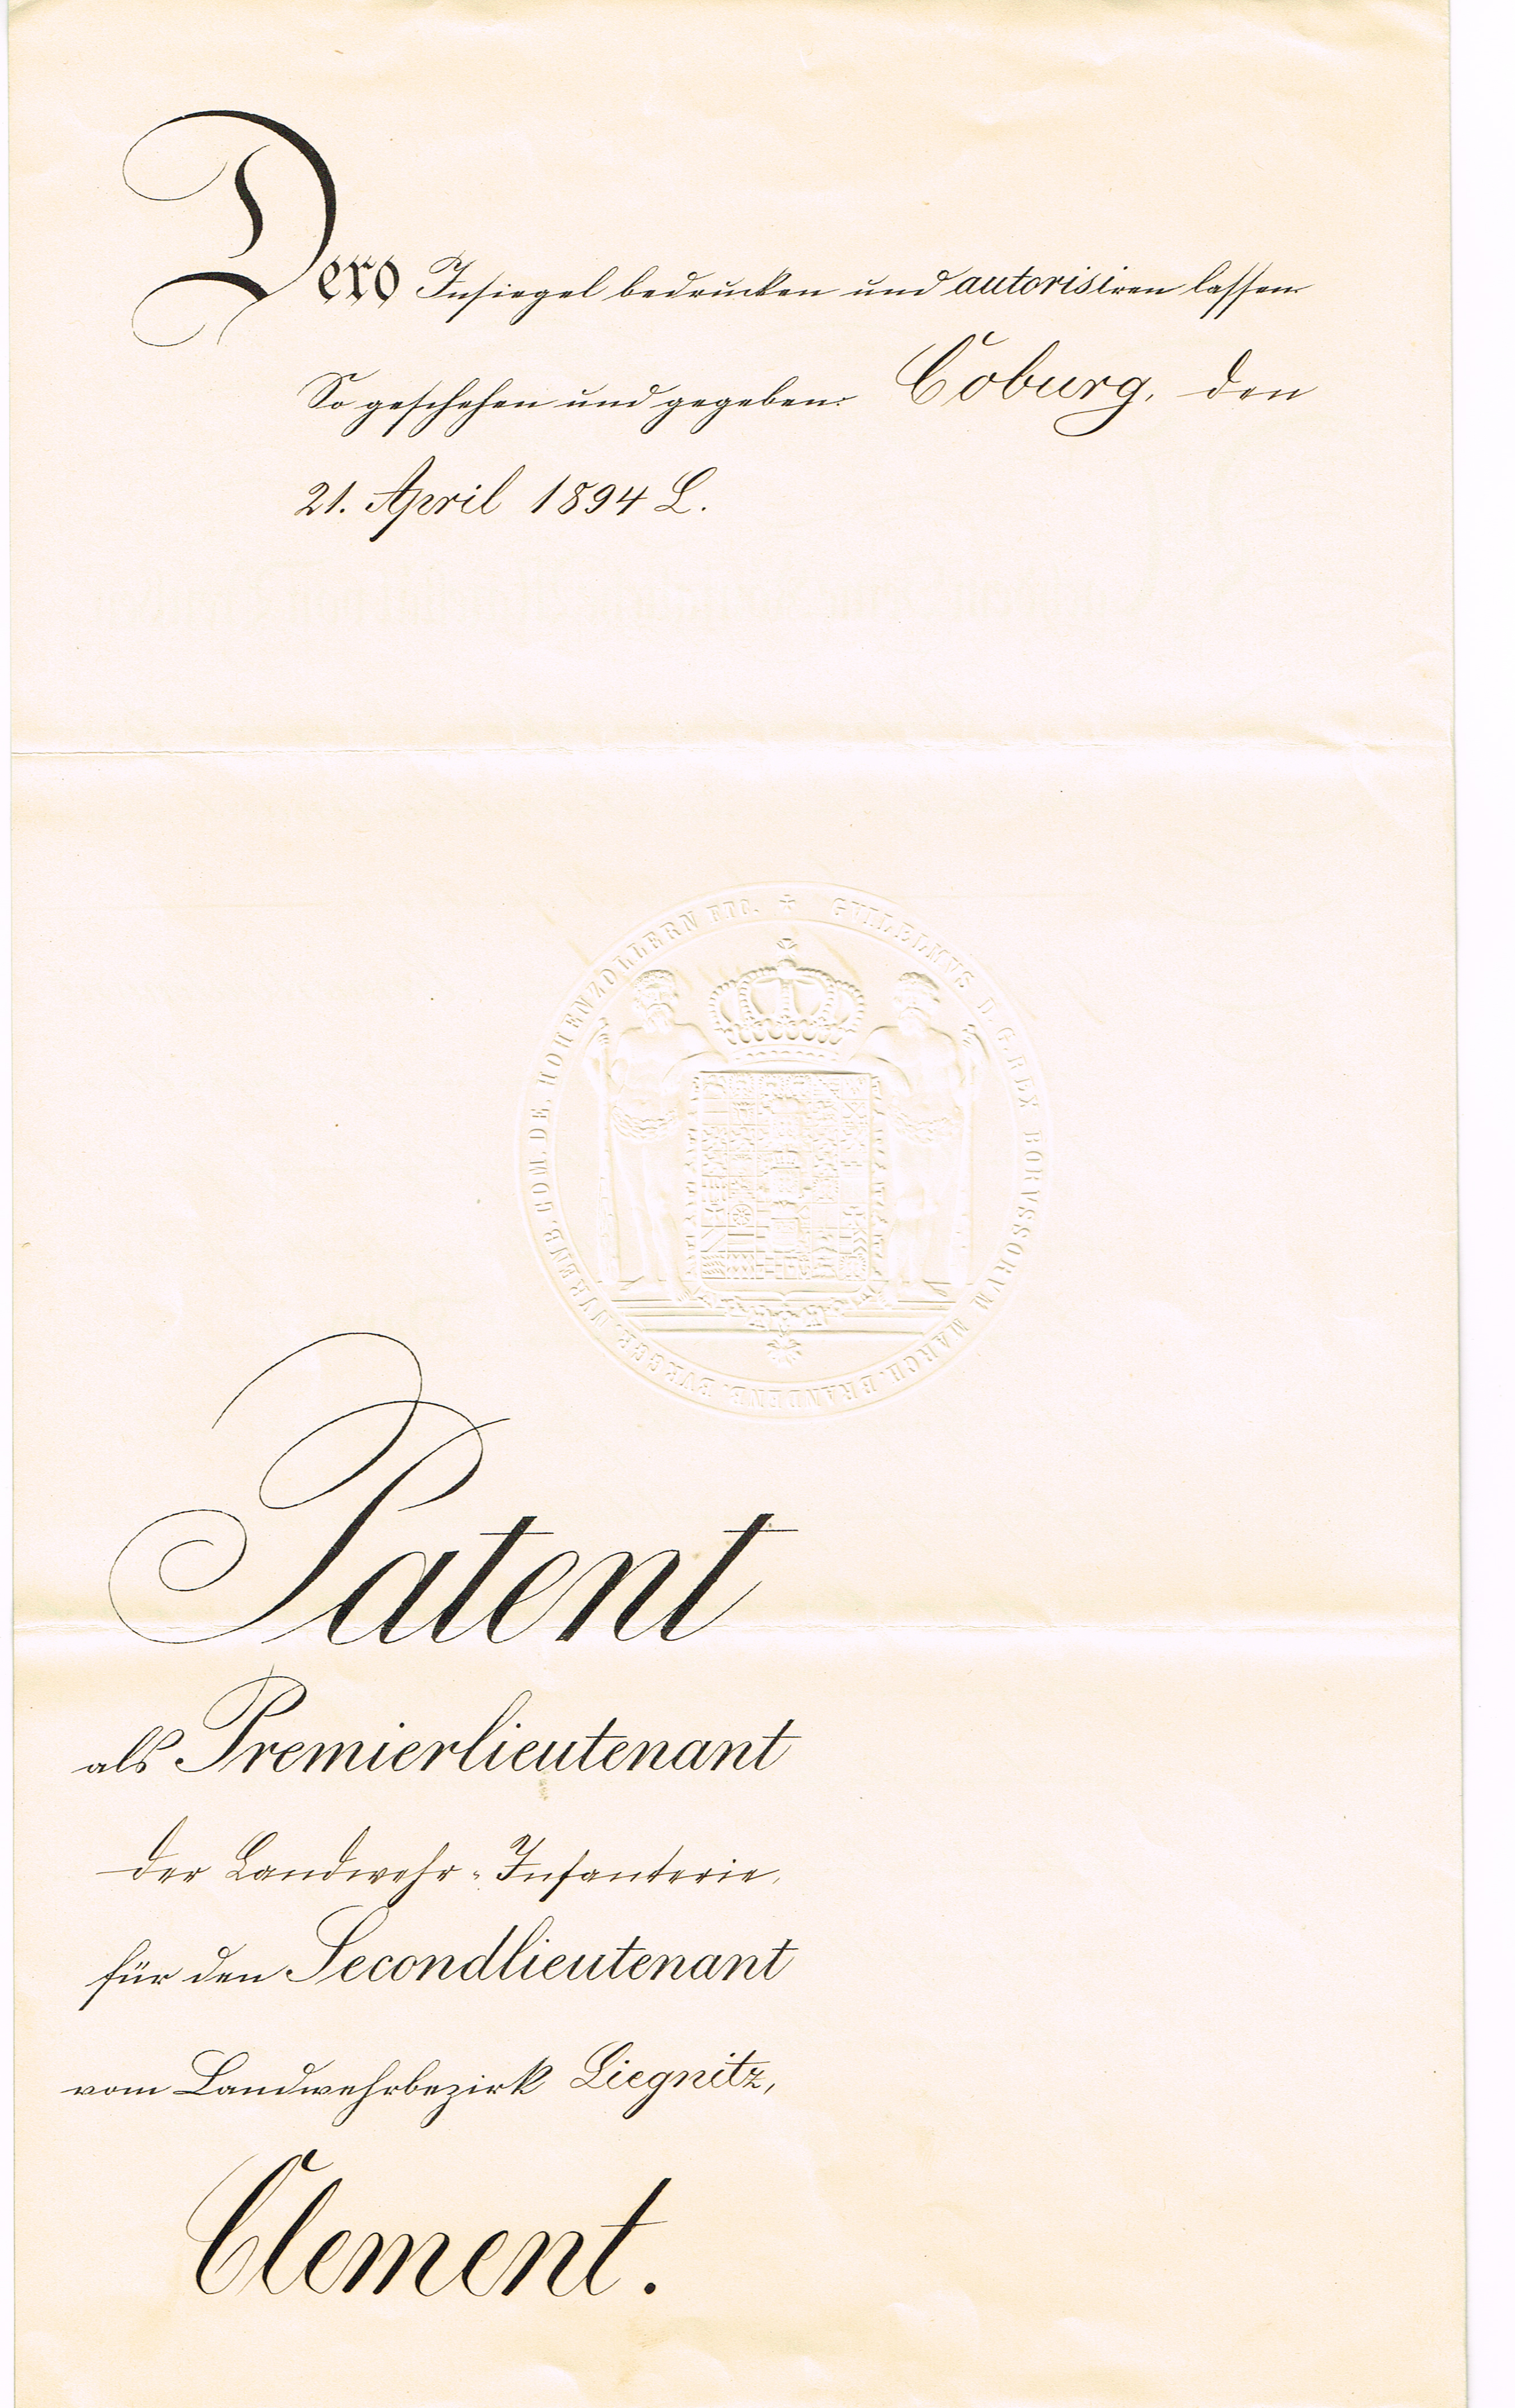 Dero Insiegel bedrucken und autorisiren lassen.
So geschehen und gegeben. Coburg, den
21. April 1894 L.
GVILLELMVS D. G. REX BORVSSORVM MARCH. BRANDENB. BVRGGR. NVRENB. COM. DE. HOHENZOLLERN ETC.
Patent
als Premierlieutenant
der Landwehr-Infanterie,
für den Secondlieutenant
vom Landwehrbezirk Liegnitz,
Clement.